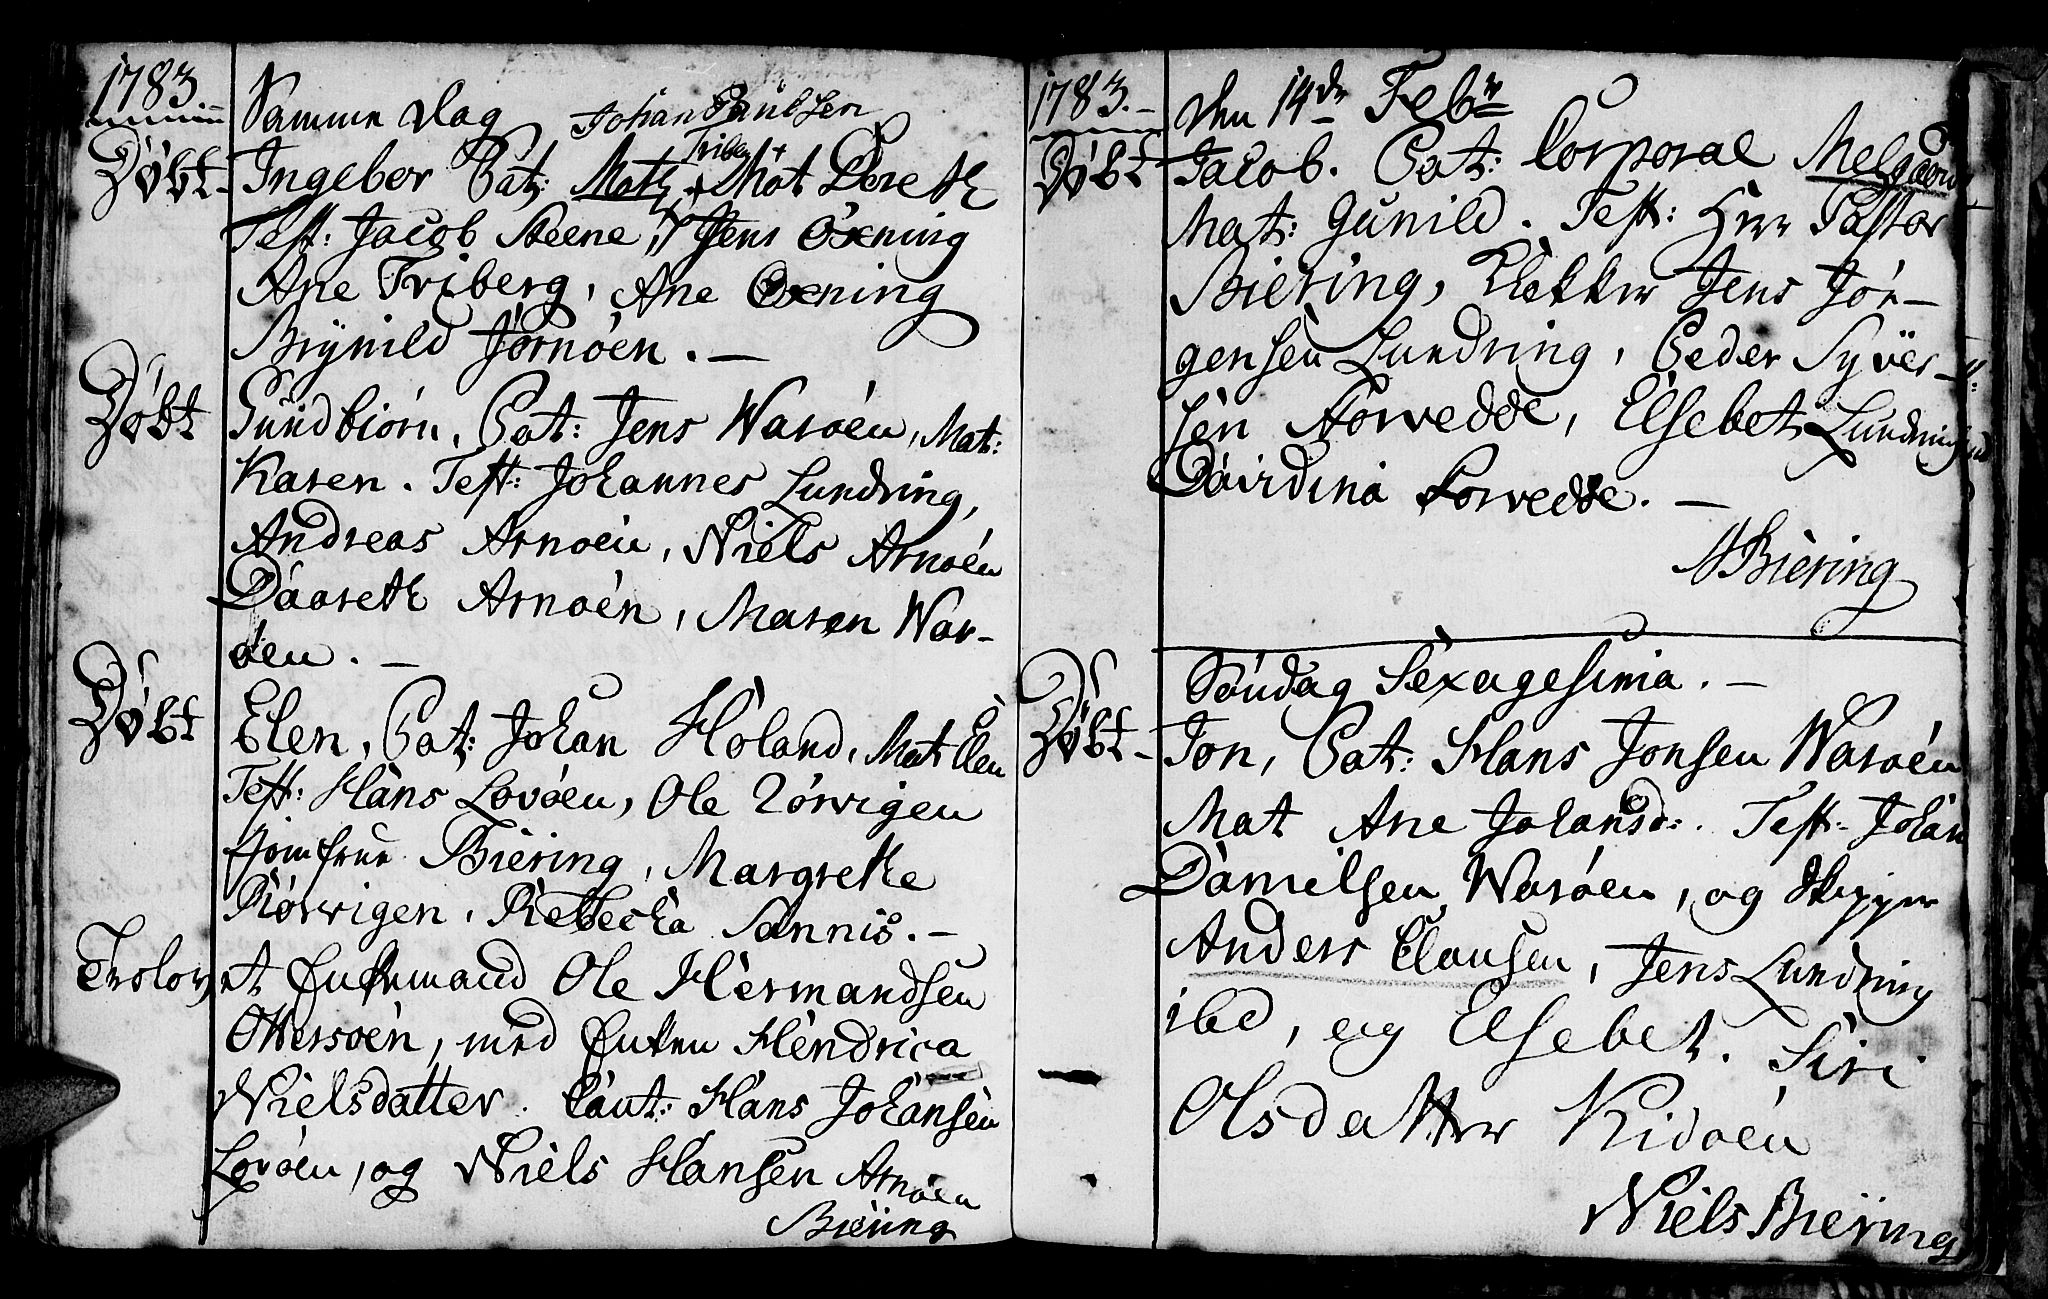 1783.
Samme dag Johan Paulsen
Døbt Ingebor Pat: Mat: Mat Dorethe
Test: Jacob Steene, Jens Oxning
Ane Friberg, Ane Oxning
Brynild Jørnøen.
Døbt Gundbiørn, Pat: Jens Warøen, Mat:
Karen. Test: Johannes Lundring,
Andreas Arnøen, Niels Arnøen
Daareth Arnøen, Maren War-
øen.
Døbt Elen, Pat: Johan Høland, Mat Elen
Test: Hans Lovøen, Ole Rørvigen
Jomfrue Biering, Margrethe
Rørvigen, Rebecka Sannis.
Trolov et Enkemand Ole Hermandsen
Ottersøen, med Enken Hendrica
Nielsdatter. Caut: Hans Johansen
Lovøen, og Niels Hansen Arnøen
Biering
1783.
den 14de Febr
Døbt Jacob. Pat: Corporal Melgaard
Mat: Gunild. Test: Herr Pastor
Biering, Klokker Jens Jør-
gensen Lundring, Peder Syver-
sen Torvedde, Elsebet Lundring
Daardina Torvedde.
NBiering
Søndag Sexagesima.
Døbt Jon, Pat: Hans Jonsen Warøen
Mat Ane Johansd: Test: Johan
Danielsen Warøen, og Skipper
Anders Clausen, Jens Lundring
ibd, og Elsebet. Siri
Olsdatter Kidøen
Niels Biering